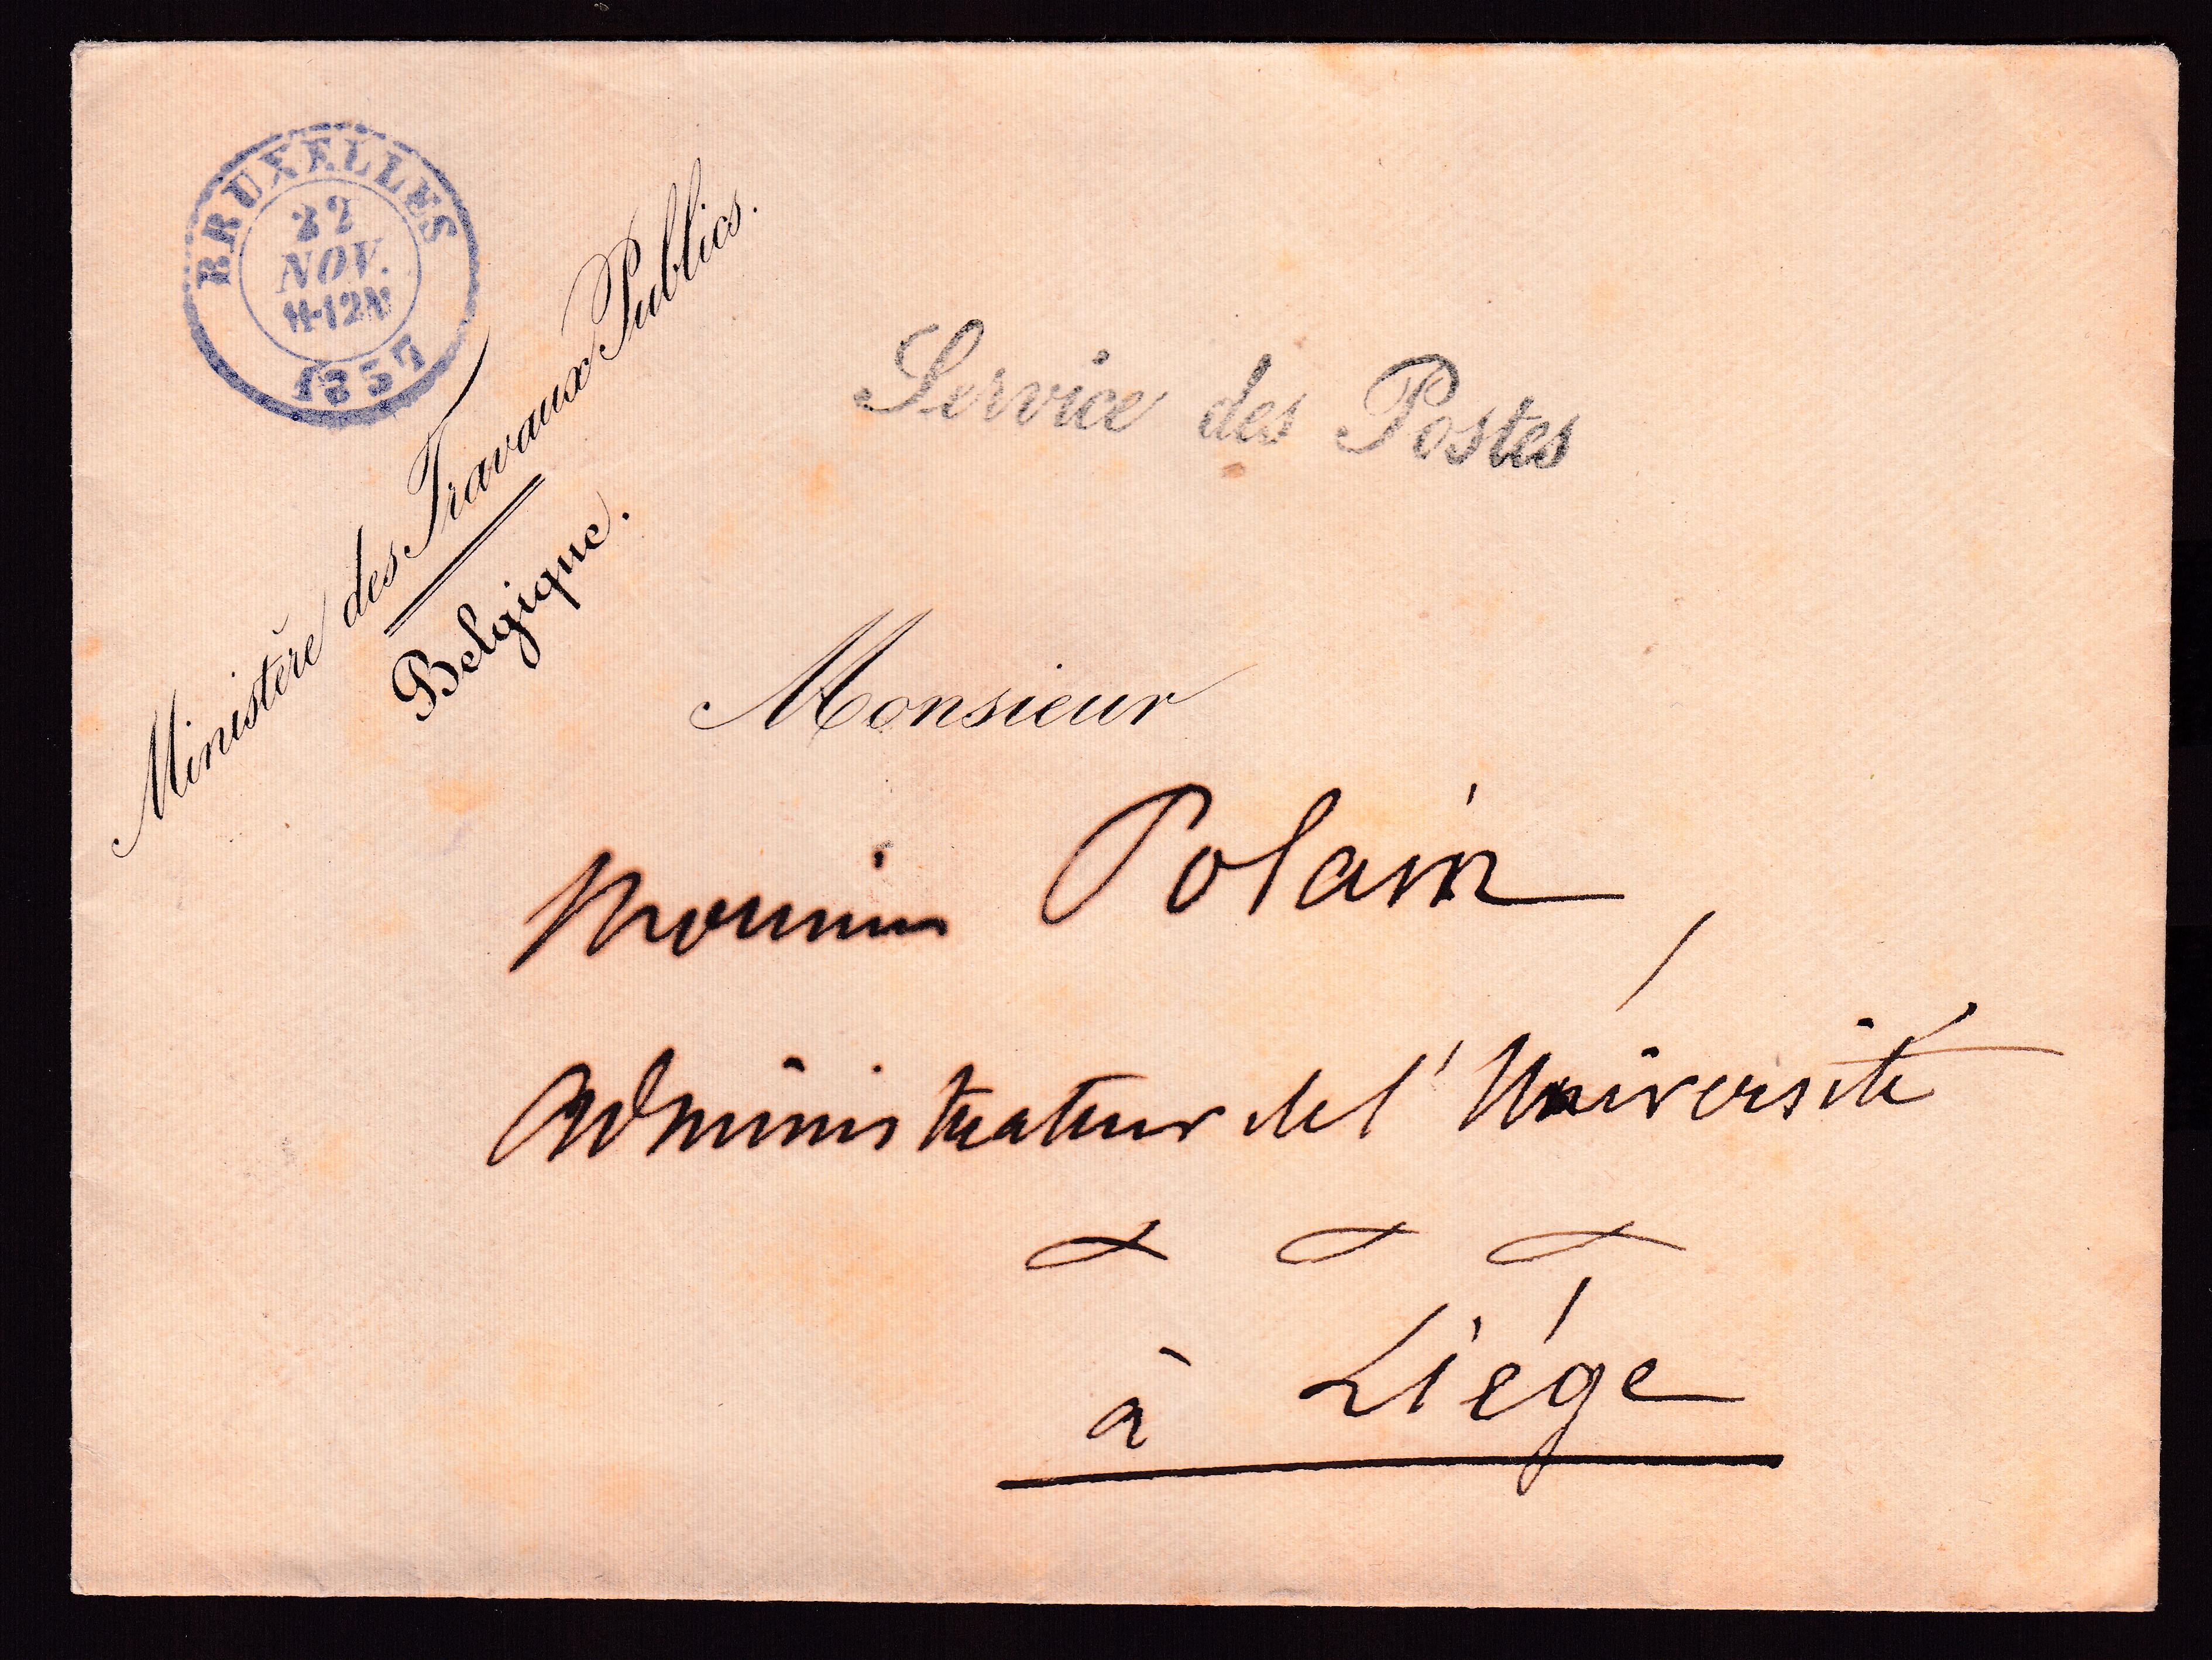 BRUXELLES
22
NOV.
11-12M
1857
Ministère des Travaux Publics.
Belgique.
Service des Postes
Monsieur
Monsieur Polain,
administrateur de l'Université
à Liége